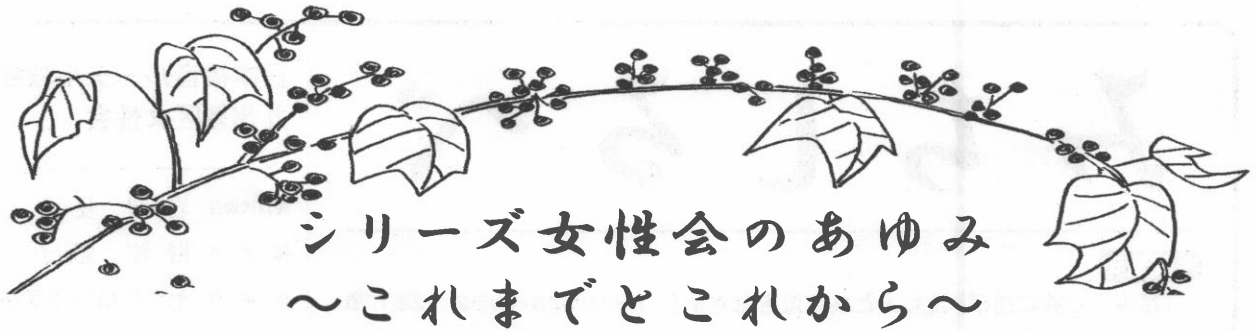 シリーズ女性会のあゆみ
～これまでとこれから～